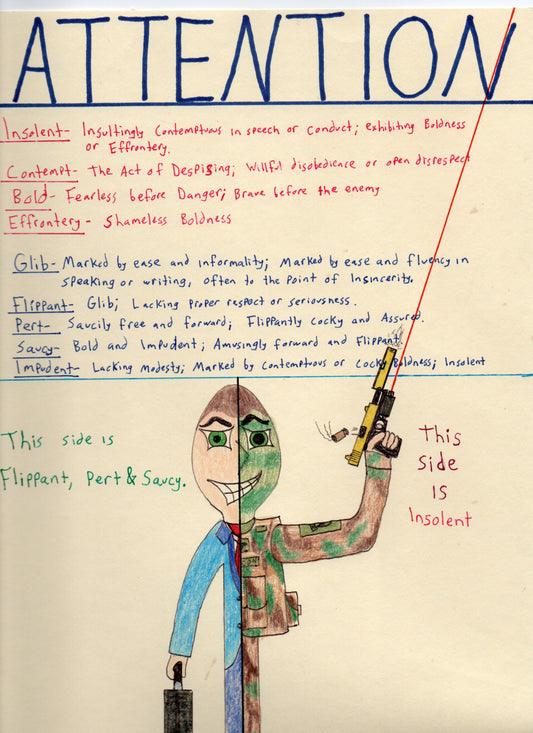 ATTENTION
Insolent- Insultingly Contemptuous in speech or conduct; exhibiting Boldness
or Effrontery.
Contempt- The Act of Despising; Willful disobedience or open disrespect
Bold- Fearless before Danger; Brave before the enemy
Effrontery- Shameless Boldness
Glib- Marked by ease and informality; Marked by ease and fluency in
speaking or writing, often to the point of Insincerity.
Flippant- Glib; Lacking proper respect or seriousness.
Pert- Saucily free and forward; Flippantly Cocky and Assured.
Saucy- Bold and Impudent; Amusingly forward and Flippant.
Impudent- Lacking Modesty; Marked by Contemptuous or Cocky Boldness; Insolent
This side is
Flippant, Pert & Saucy.
This
side
is
Insolent